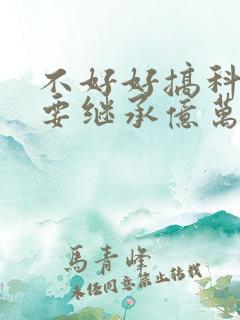 不好好搞科
要继承億萬
馬青峰
未经同意禁止转载